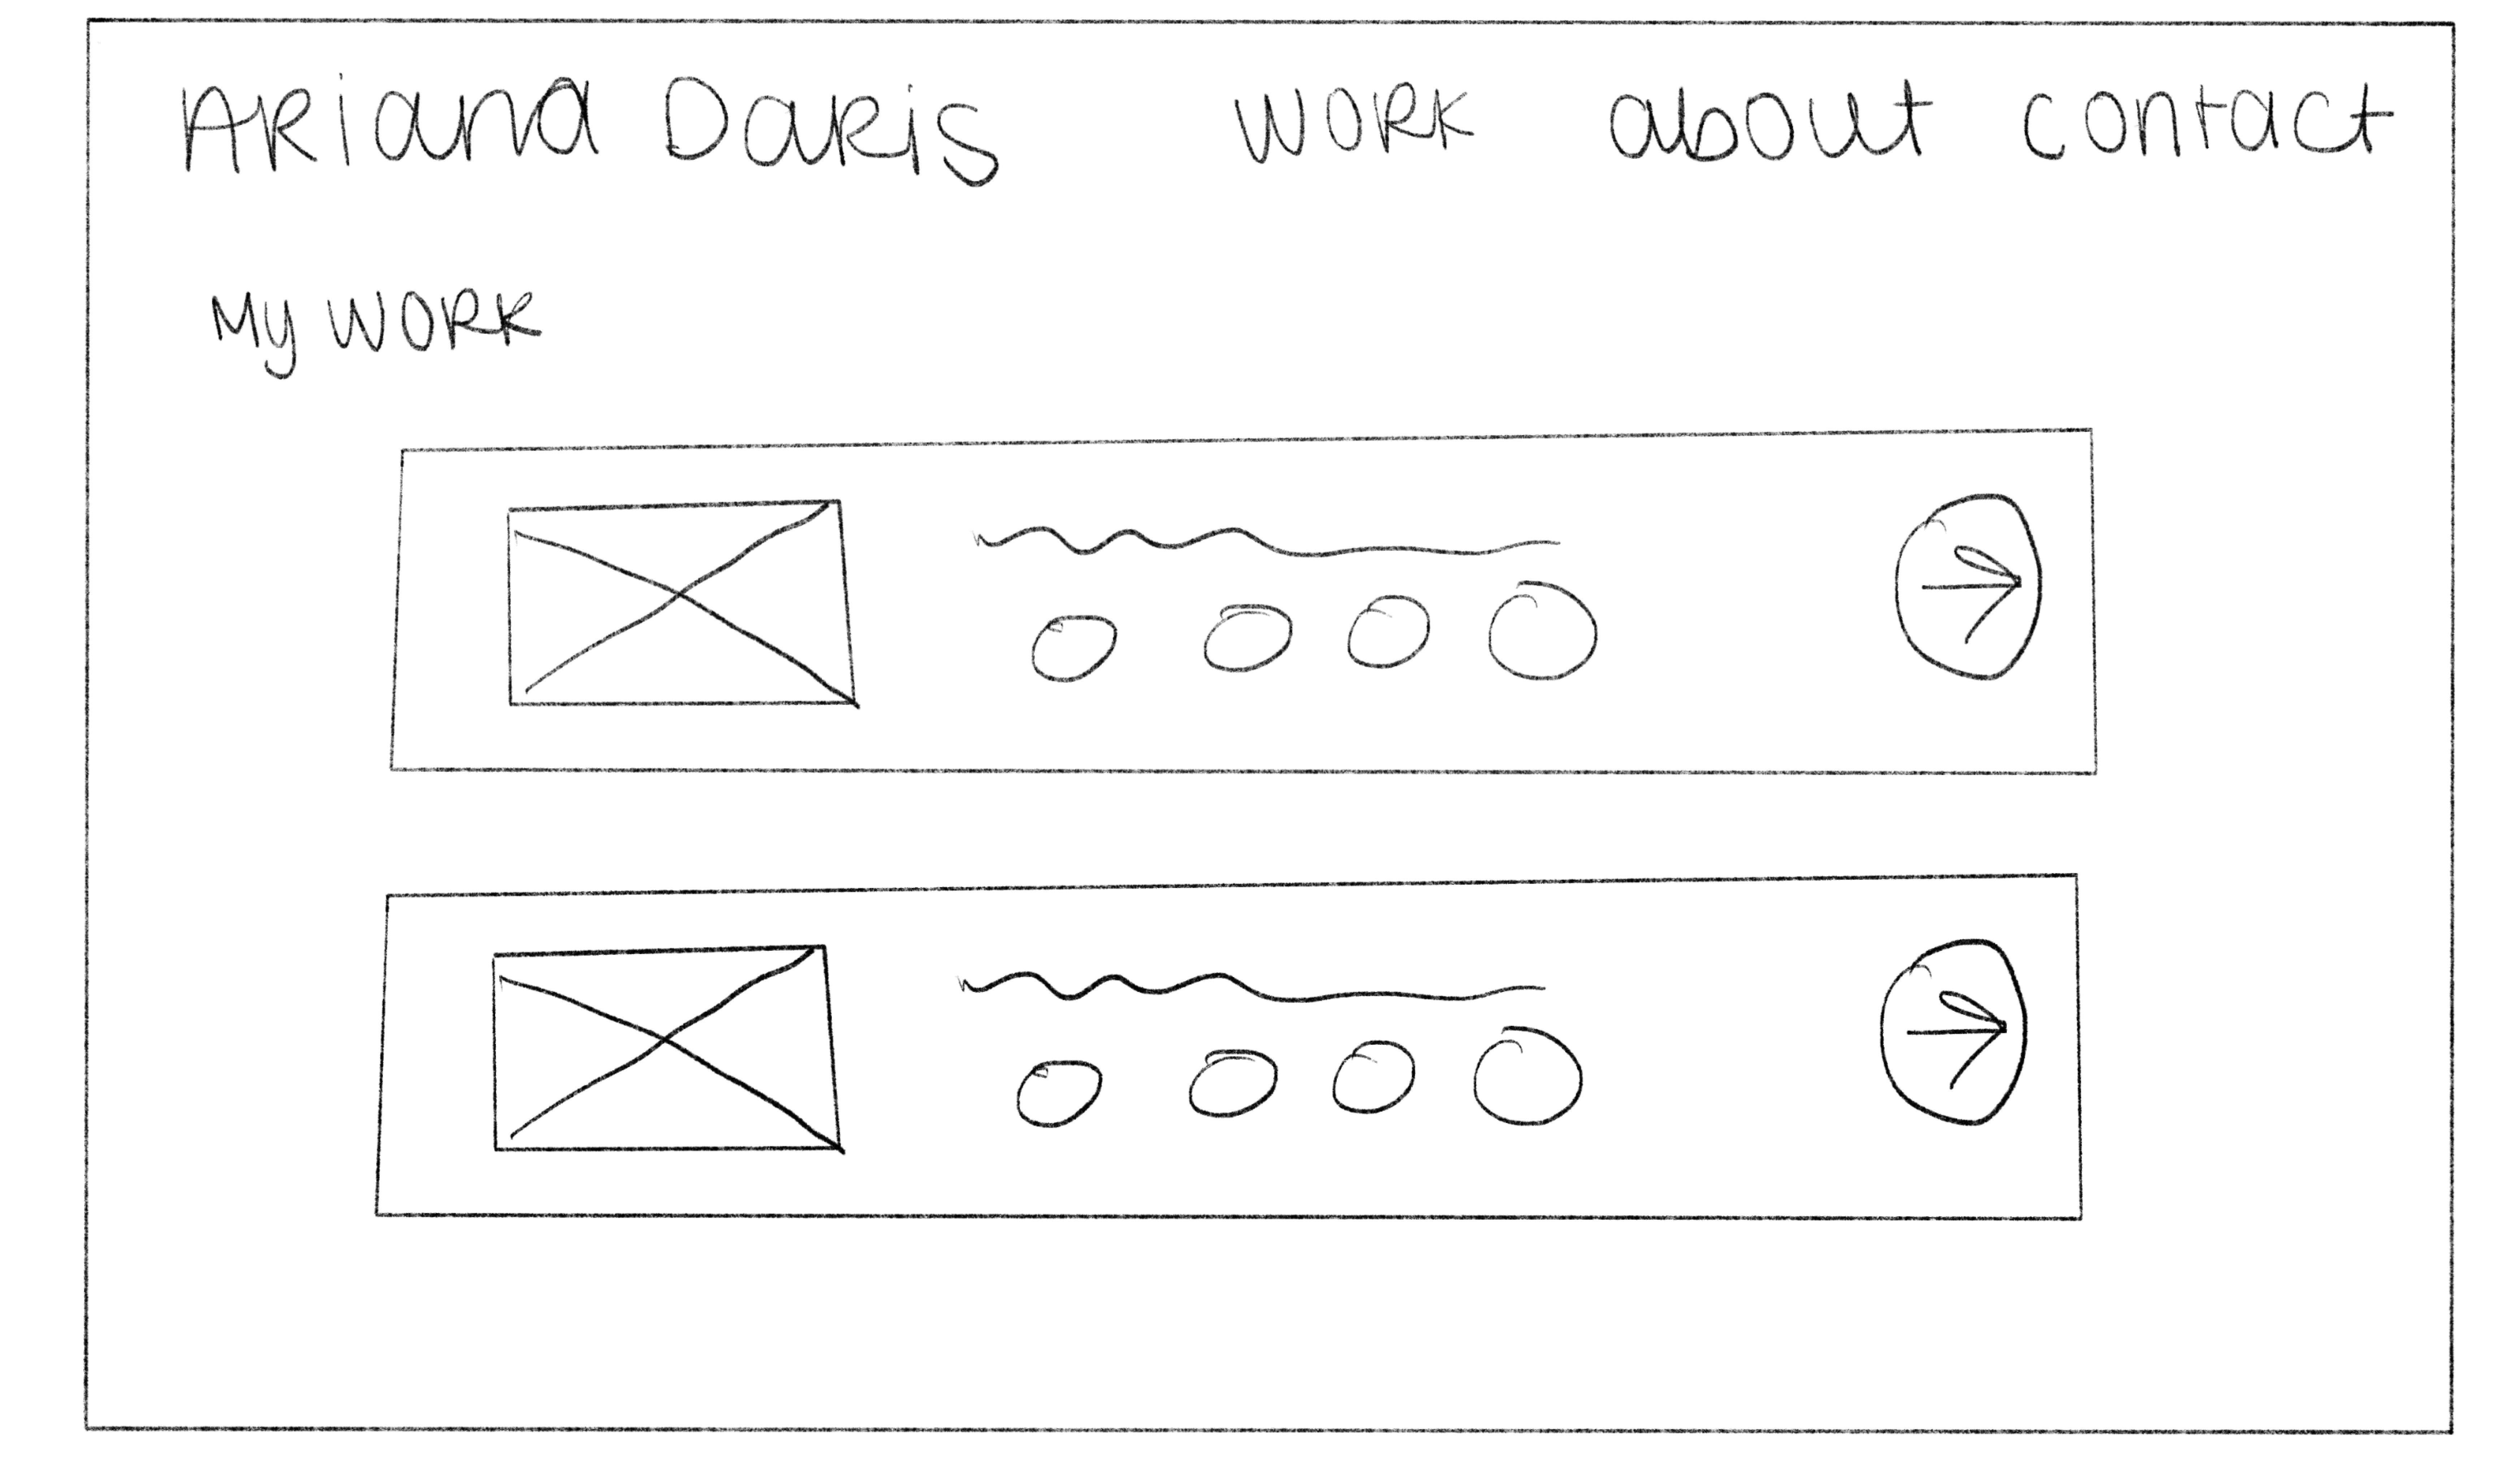 Ariana Daris work about contact
My work